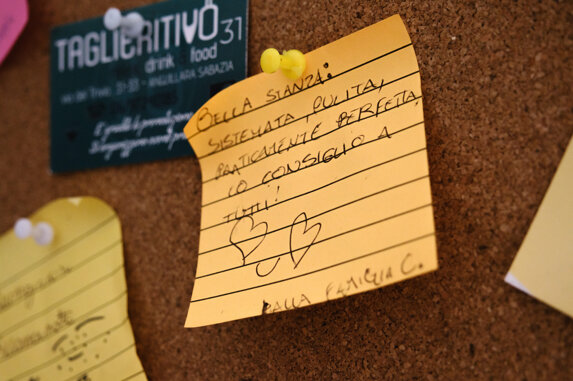 TAGLIERITIVÒ 31
drink & food
ANGUILLARA SABAZIA
BELLA STANZA:
SISTEMATA, PULITA,
PRATICAMENTE PERFETTA.
LO CONSIGLIO A
TUTTI!
DALLA FAMIGLIA C.